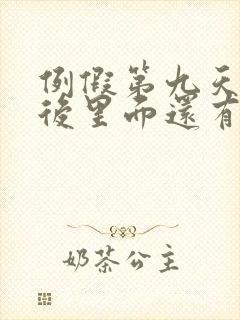 例假第九天
後里面還有
奶茶公主